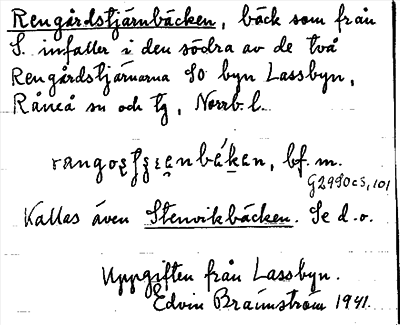 Rengårdstjärnbäcken, bäck som från
S. infaller i den södra av de två
Rengårdstjärnarna SO byn Lassbyn,
Råneå sn och tg, Norrb. l.
bf. m.
G2990cs, 101
Kallas även Stenvikbäcken. Se d. o.
Uppgiften från Lassbyn.
Edvin Brännström 1941.